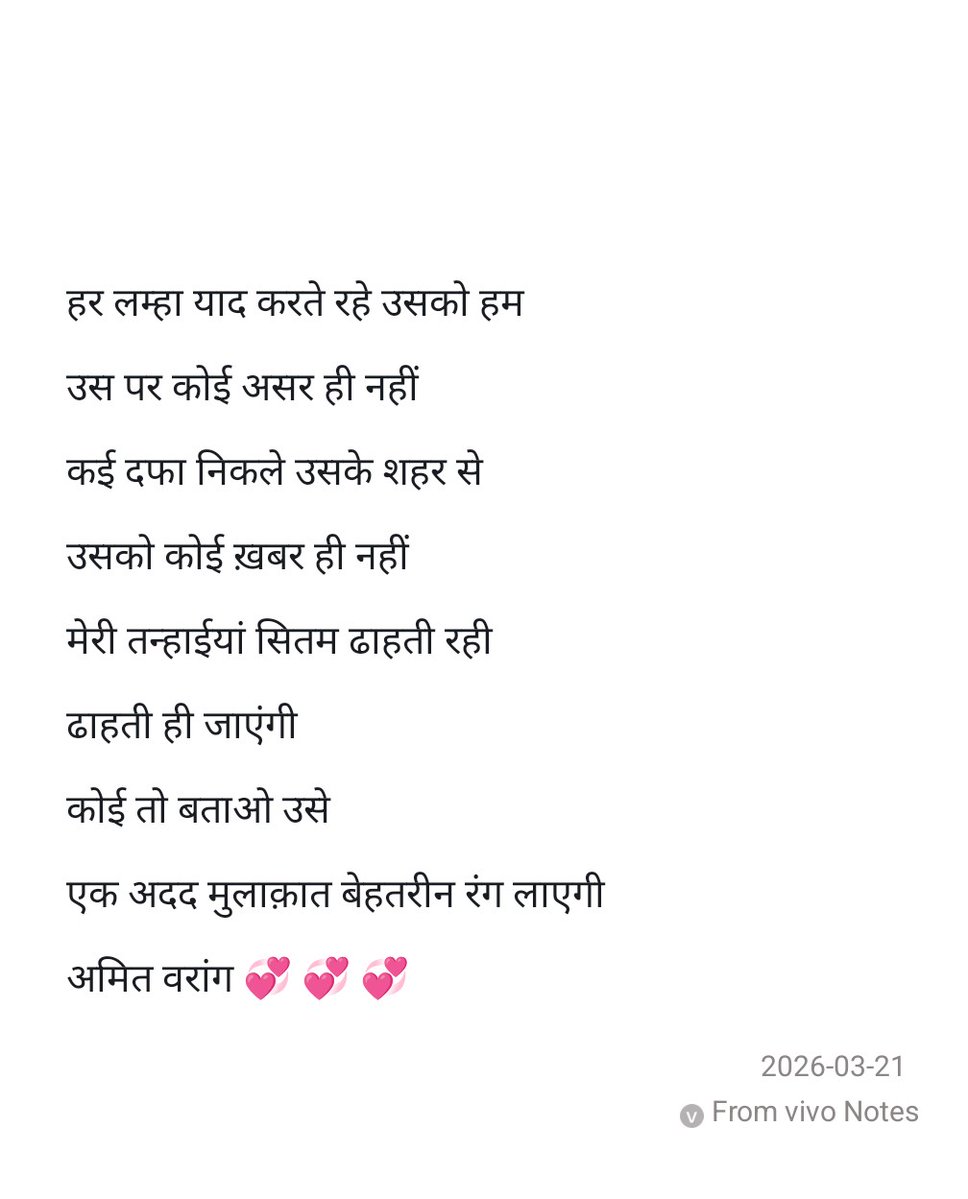 हर लम्हा याद करते रहे उसको हम
उस पर कोई असर ही नहीं
कई दफा निकले उसके शहर से
उसको कोई ख़बर ही नहीं
मेरी तन्हाईयां सितम ढाहती रही
ढाहती ही जाएंगी
कोई तो बताओ उसे
एक अदद मुलाक़ात बेहतरीन रंग लाएगी
अमित वरांग 💞 💞 💞
2026-03-21
v From vivo Notes